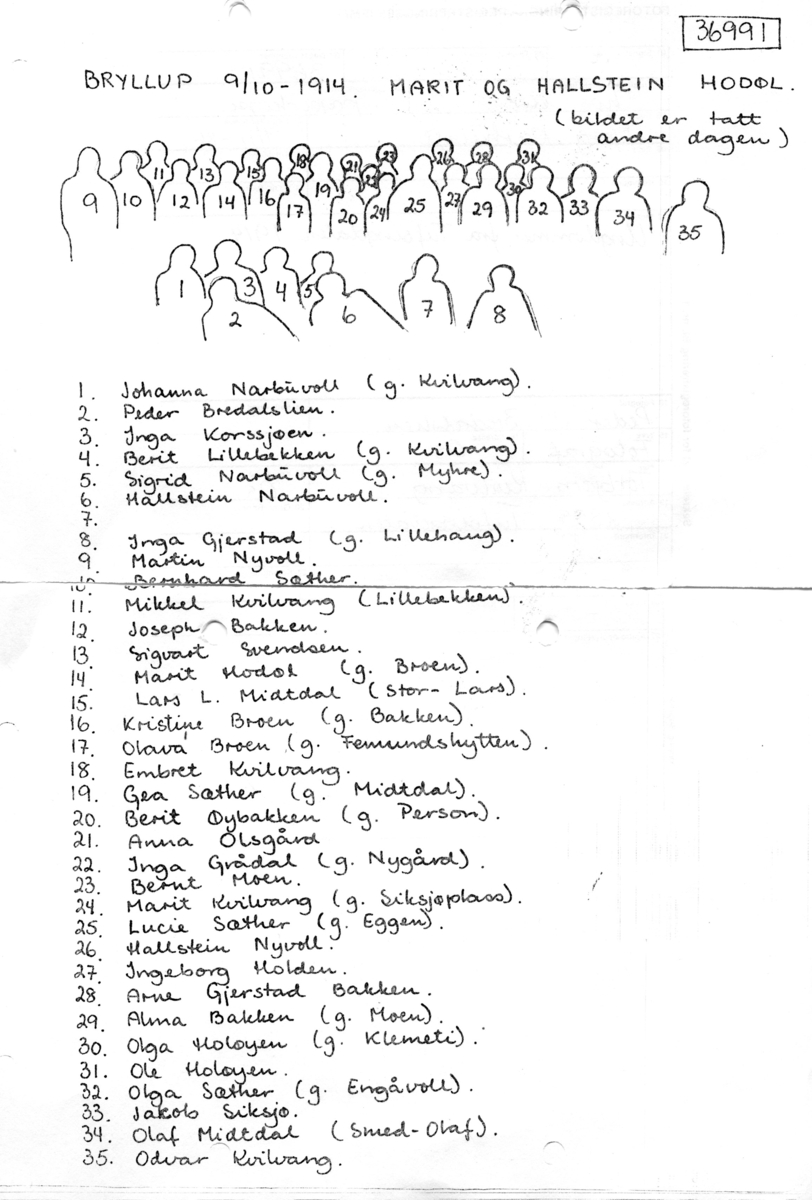 36991
BRYLLUP 9/10-1914. MARIT OG HALLSTEIN HODØL.
(bildet er tatt
andre dagen)
9 10 11 12 13 14 15 16 17 18 19 20 21 22 23 24 25 26 27 28 29 30 31 32 33 34 35
1 2 3 4 5 6 7 8
1. Johanna Narbuvoll (g. Kvilvang).
2. Peder Bredalslien.
3. Inga Korssjøen.
4. Berit Lillebekken (g. Kvilvang).
5. Sigrid Narbuvoll (g. Myhre).
6. Hallstein Narbuvoll.
7.
8. Inga Gjerstad (g. Lillehaug).
9. Martin Nyvoll.
10 Bernhard Sæther.
11. Mikkel Kvilvang (Lillebekken).
12. Joseph Bakken.
13 Sigvart Svendsen.
14 Marit Hodøl (g. Broen).
15. Lars L. Midtdal (Stor-Lars).
16. Kristine Broen (g. Bakken).
17. Olava Broen (g. Femundshytten).
18. Embret Kvilvang.
19. Gea Sæther (g. Midtdal).
20. Berit Øybakken (g. Person).
21. Anna Olsgård
22. Inga Grådal (g. Nygård).
23. Bernt Moen.
24. Marit Kvilvang (g. Siksjøplass).
25. Lucie Sæther (g. Eggen).
26. Hallstein Nyvoll.
27. Ingeborg Holden.
28. Arne Gjerstad Bakken.
29. Alma Bakken (g. Moen).
30. Olga Holøyen (g. Klemeti).
31. Ole Holøyen.
32. Olga Sæther (g. Engåvoll).
33. Jakob Siksjø.
34. Olaf Midtdal (Smed-Olaf).
35. Odvar Kvilvang.